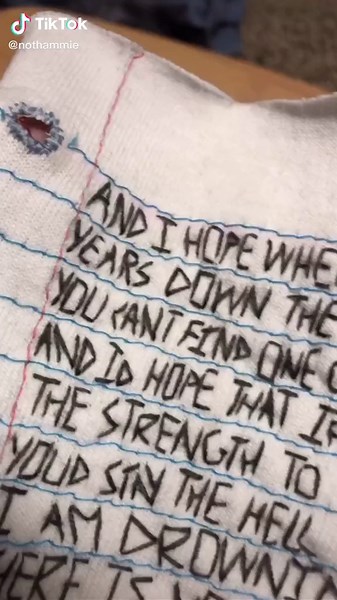 TikTok
@nothammie
AND I HOPE WHE
YEARS DOWN THE
YOU CANT FIND ONE
AND ID HOPE THAT IF
THE STRENGTH TO
YOUD STAY THE HELL
I AM DROWNIN
HERE IS